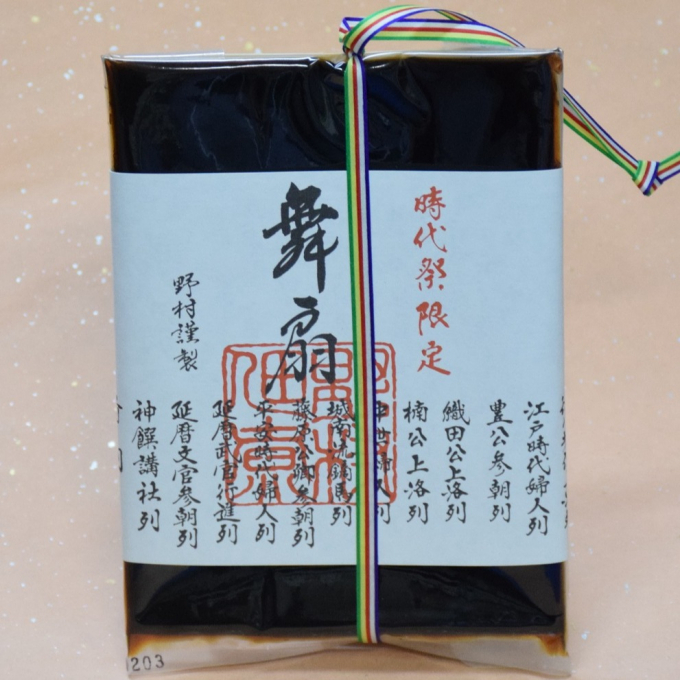 時代祭限定
舞扇
野村謹製
江戸時代婦人列
豊公参朝列
織田公上洛列
楠公上洛列
中世婦人列
城南流鏑馬列
藤原公卿参朝列
平安時代婦人列
延暦武官行進列
延暦文官参朝列
神饌講社列
1203